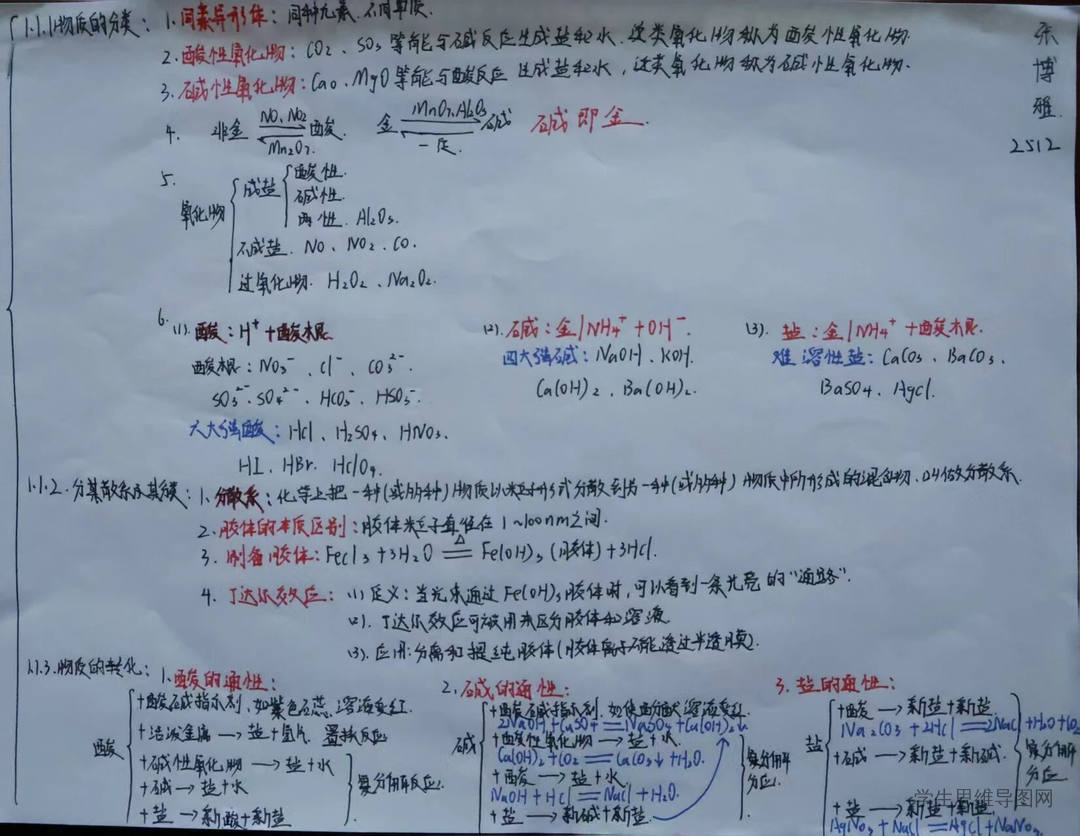 1.1.1物质的分类: 1. 同素异形体: 同种元素. 不同单质.
2. 酸性氧化物: CO2、SO3 等能与碱反应生成盐和水. 这类氧化物称为酸性氧化物.
3. 碱性氧化物: CaO、MgO等能与酸反应 生成盐和水, 这类氧化物称为碱性氧化物.
张博雅
2512
4. 非金 NO、NO2 酸. 金 MnO7.Al2O3 碱 碱即金.
Mn2O7. 一定.
5.
氧化物 成盐 酸性.
碱性.
两性. Al2O3.
不成盐. NO、NO2、CO.
过氧化物. H2O2、Na2O2.
6.
(1). 酸: H+ +酸根 (2). 碱: 金/NH4+ +OH-. (3). 盐: 金/NH4+ +酸根.
酸根: NO3-、Cl-、CO3 2-. 四大强碱: NaOH、KOH. 难溶性盐: CaCO3、BaCO3.
SO3 2-、SO4 2-、HCO3-、HSO3-. Ca(OH)2、Ba(OH)2. BaSO4、AgCl.
六大强酸: HCl、H2SO4、HNO3、
HI、HBr、HClO4.
1.1.2.分散系及其分类: 1. 分散系: 化学上把一种(或几种)物质以粒子形式分散到另一种(或几种)物质中所形成的混合物. 叫做分散系.
2. 胶体的本质区别: 胶体粒子直径在1~100nm之间.
3. 制备胶体: FeCl3+3H2O ═△═ Fe(OH)3 (胶体)+3HCl.
4. 丁达尔效应: (1) 定义: 当光束通过Fe(OH)3胶体时, 可以看到一条光亮的"通路".
(2). 丁达尔效应可被用来区分胶体和溶液
(3). 应用: 分离和提纯胶体(胶体离子不能透过半透膜).
1.1.3.物质的转化: 1. 酸的通性: 2. 碱的通性: 3. 盐的通性:
酸 +酸碱指示剂, 如紫色石蕊, 溶液变红.
+活泼金属→盐+氢气 置换反应
+碱性氧化物→盐+水
+碱→盐+水 复分解反应.
+盐→新酸+新盐
碱 +酸碱指示剂, 如使酚酞溶液变红.
2NaOH+CuSO4═Na2SO4+Cu(OH)2↓
+酸性氧化物→盐+水.
Ca(OH)2+CO2═CaCO3↓+H2O.
+酸→盐+水
NaOH+HCl═NaCl+H2O.
+盐→新碱+新盐.
复分解反应.
盐 +酸→新盐+新盐
Na2CO3+2HCl═2NaCl+H2O+CO2
+碱→新盐+新碱.
+盐→新盐+新盐
AgNO3+NaCl═AgCl+NaNO3
复分解反应.
学生思维导图网